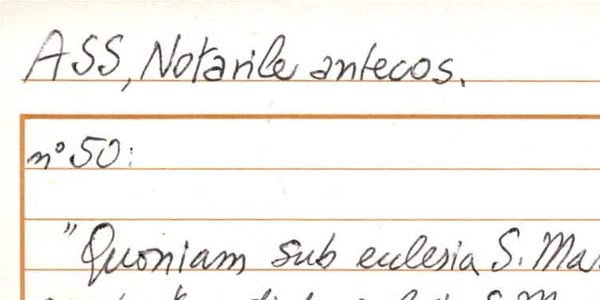 ASS, Notarile antecos.
n° 50:
"Quoniam sub ecclesia S. Ma